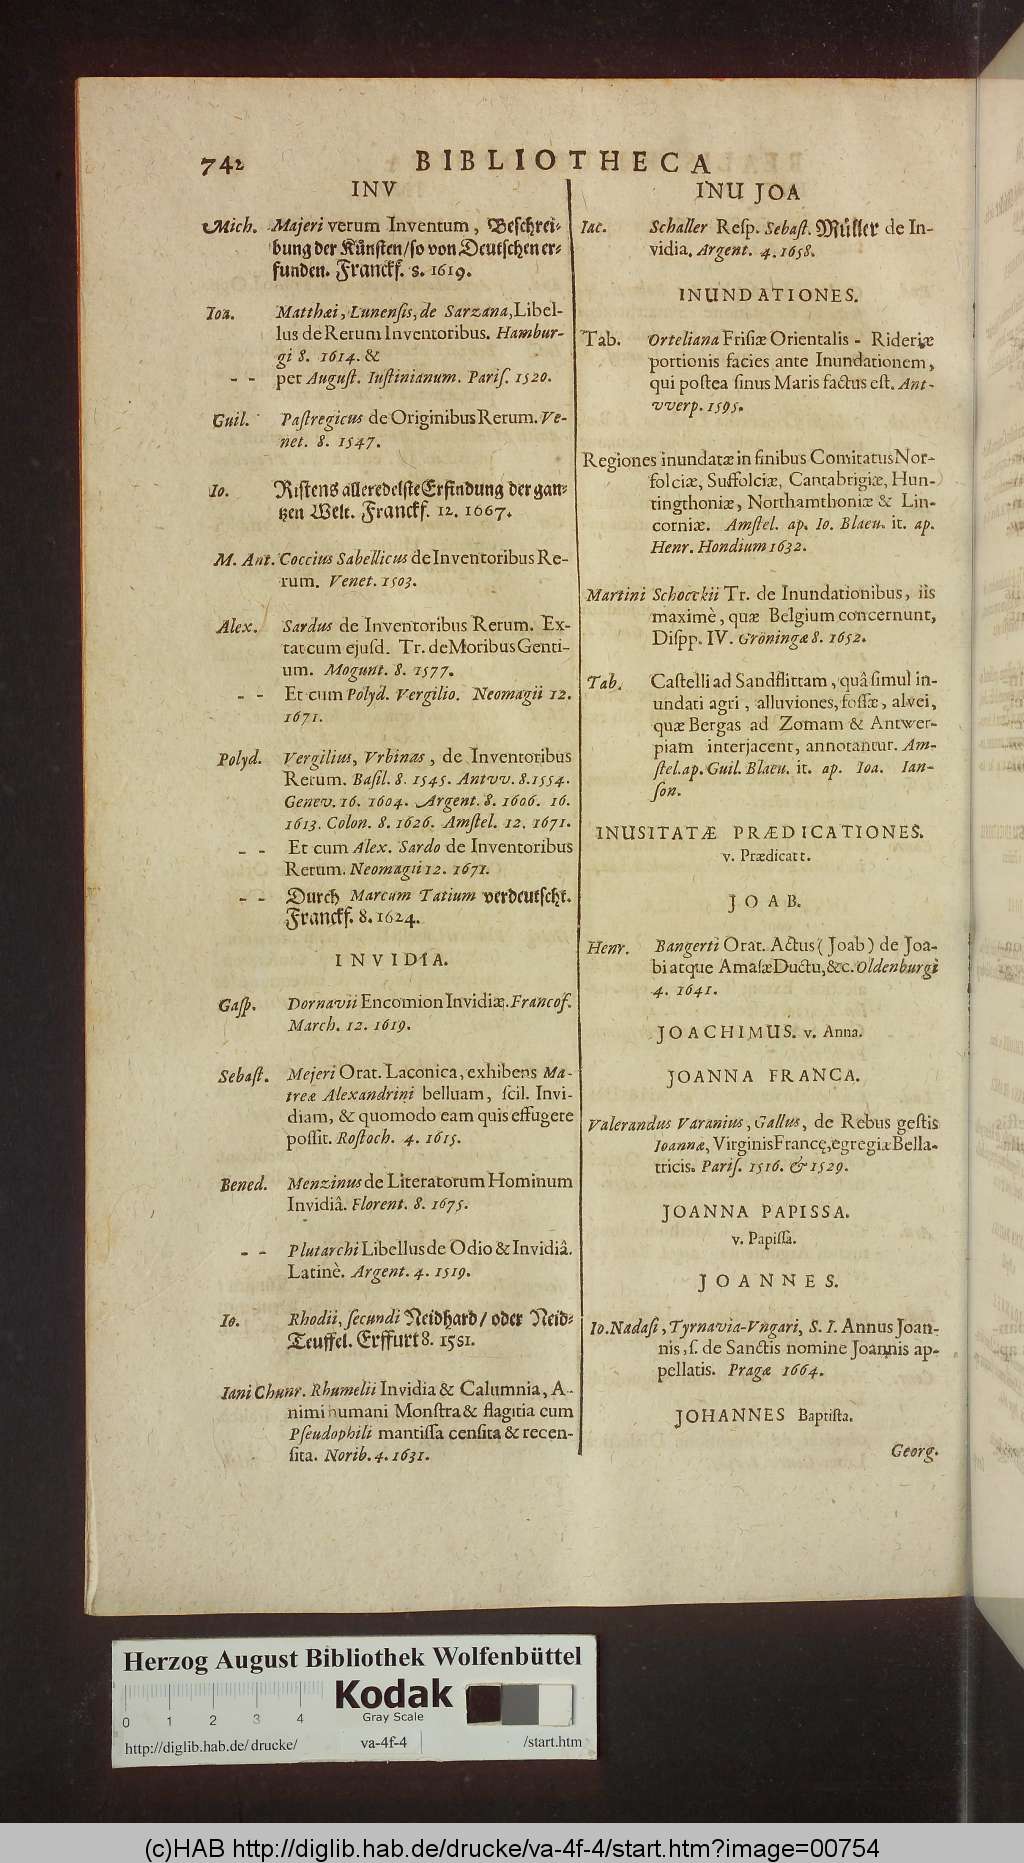 742
BIBLIOTHECA
INV
Mich. Majeri verum Inventum, Beſchrei-
bung der Künſten/ ſo von Deutſchen er-
funden. Franckf. 8. 1619.
Ioa. Matthæi, Lunenſis, de Sarzana, Libel-
lus de Rerum Inventoribus. Hambur-
gi 8. 1614. &
- - per Auguſt. Iuſtinianum. Pariſ. 1520.
Guil. Paſtregicus de Originibus Rerum. Ve-
net. 8. 1547.
Io. Riſtens alleredelſte Erfindung der gan-
tzen Welt. Franckf. 12. 1667.
M. Ant. Coccius Sabellicus de Inventoribus Re-
rum. Venet. 1503.
Alex. Sardus de Inventoribus Rerum. Ex-
tat cum ejuſd. Tr. de Moribus Genti-
um. Mogunt. 8. 1577.
- - Et cum Polyd. Vergilio. Neomagii 12.
1671.
Polyd. Vergilius, Vrbinas, de Inventoribus
Rerum. Baſil. 8. 1545. Antvv. 8. 1554.
Genev. 16. 1604. Argent. 8. 1606. 16.
1613. Colon. 8. 1626. Amſtel. 12. 1671.
- - Et cum Alex. Sardo de Inventoribus
Rerum. Neomagii 12. 1671.
- - Durch Marcum Tatium verdeutſcht.
Franckf. 8. 1624.
INVIDIA.
Gaſp. Dornavii Encomion Invidiæ. Francof.
March. 12. 1619.
Sebaſt. Mejeri Orat. Laconica, exhibens Ma-
treæ Alexandrini belluam, ſcil. Invi-
diam, & quomodo eam quis effugere
poſſit. Roſtoch. 4. 1615.
Bened. Menzinus de Literatorum Hominum
Invidiâ. Florent. 8. 1675.
- - Plutarchi Libellus de Odio & Invidiâ.
Latinè. Argent. 4. 1519.
Io. Rhodii, ſecundi Neidhard/ oder Neid-
Teuffel. Erffurt 8. 1581.
Iani Chunr. Rhumelii Invidia & Calumnia, A-
nimi humani Monſtra & flagitia cum
Pſeudophili mantiſſa cenſita & recen-
ſita. Norib. 4. 1631.
INU JOA
Iac. Schaller Reſp. Sebaſt. Müller de In-
vidia. Argent. 4. 1658.
INUNDATIONES.
Tab. Orteliana Friſiæ Orientalis - Rideriæ
portionis facies ante Inundationem,
qui poſtea ſinus Maris factus eſt. Ant-
vverp. 1595.
Regiones inundatæ in finibus Comitatus Nor-
folciæ, Suffolciæ, Cantabrigiæ, Hun-
tingthoniæ, Northamthoniæ & Lin-
corniæ. Amſtel. ap. Io. Blaeu. it. ap.
Henr. Hondium 1632.
Martini Schoockii Tr. de Inundationibus, iis
maximè, quæ Belgium concernunt,
Diſpp. IV. Gröningæ 8. 1652.
Tab. Caſtelli ad Sandflittam, quâ ſimul in-
undati agri, alluviones, foſſæ, alvei,
quæ Bergas ad Zomam & Antwer-
piam interjacent, annotantur. Am-
ſtel. ap. Guil. Blaeu. it. ap. Ioa. Ian-
ſon.
INUSITATÆ PRÆDICATIONES.
v. Prædicatt.
JOAB.
Henr. Bangerti Orat. Actus (Joab) de Joa-
bi atque Amaſæ Ductu, &c. Oldenburgi
4. 1641.
JOACHIMUS. v. Anna.
JOANNA FRANCA.
Valerandus Varanius, Gallus, de Rebus geſtis
Joannæ, Virginis Francę, egregiæ Bella-
tricis. Pariſ. 1516. & 1529.
JOANNA PAPISSA.
v. Papiſſa.
JOANNES.
Io. Nadaſi, Tyrnavia-Vngari, S. I. Annus Joan-
nis, ſ. de Sanctis nomine Joannis ap-
pellatis. Pragæ 1664.
JOHANNES Baptiſta.
Georg.
Herzog August Bibliothek Wolfenbüttel
Kodak
Gray Scale
0 1 2 3 4
http://diglib.hab.de/drucke/ va-4f-4 /start.htm
(c)HAB http://diglib.hab.de/drucke/va-4f-4/start.htm?image=00754